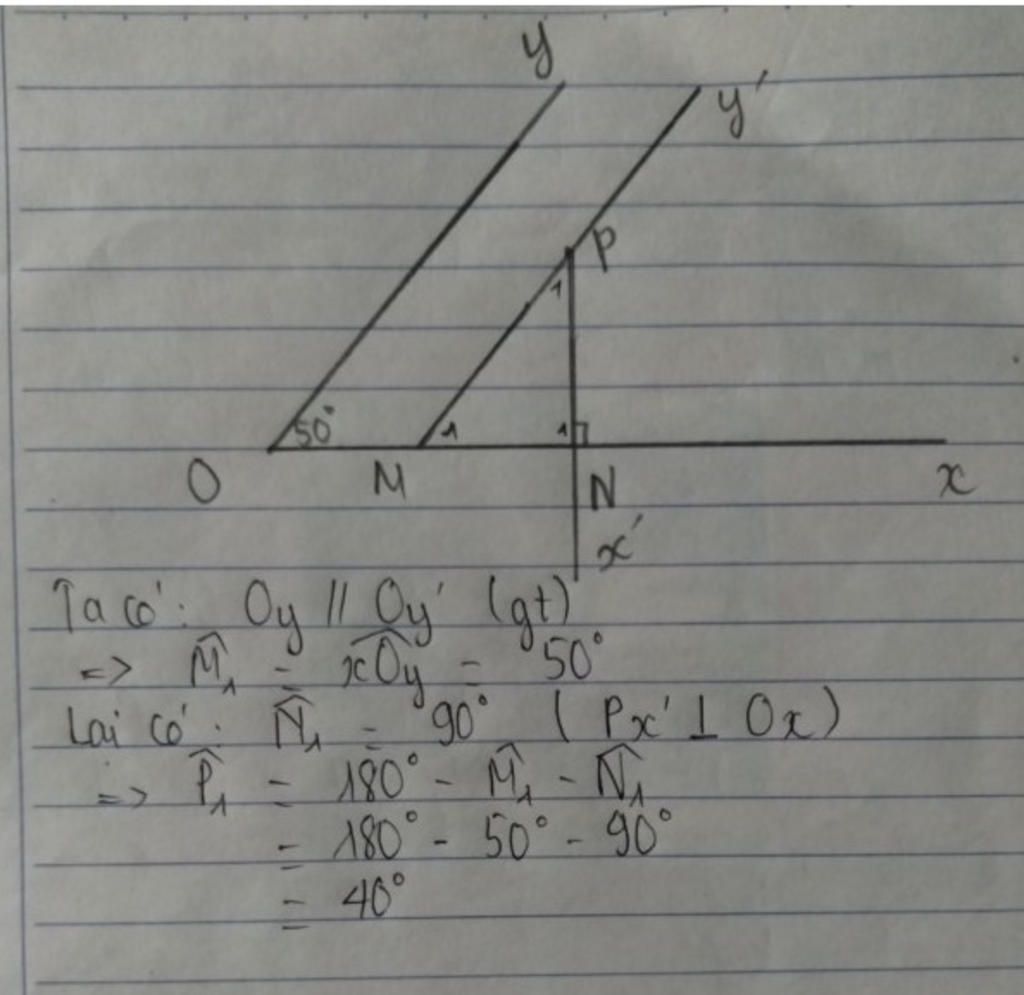 y
y'
P
1
50°
1
1
O
M
N
x
x'
Ta có: Oy // Oy' (gt)
=> M̂₁ = x̂Oy = 50°
Lại có: N̂₁ = 90° (Px' ⊥ Ox)
=> P̂₁ = 180° - M̂₁ - N̂₁
= 180° - 50° - 90°
= 40°